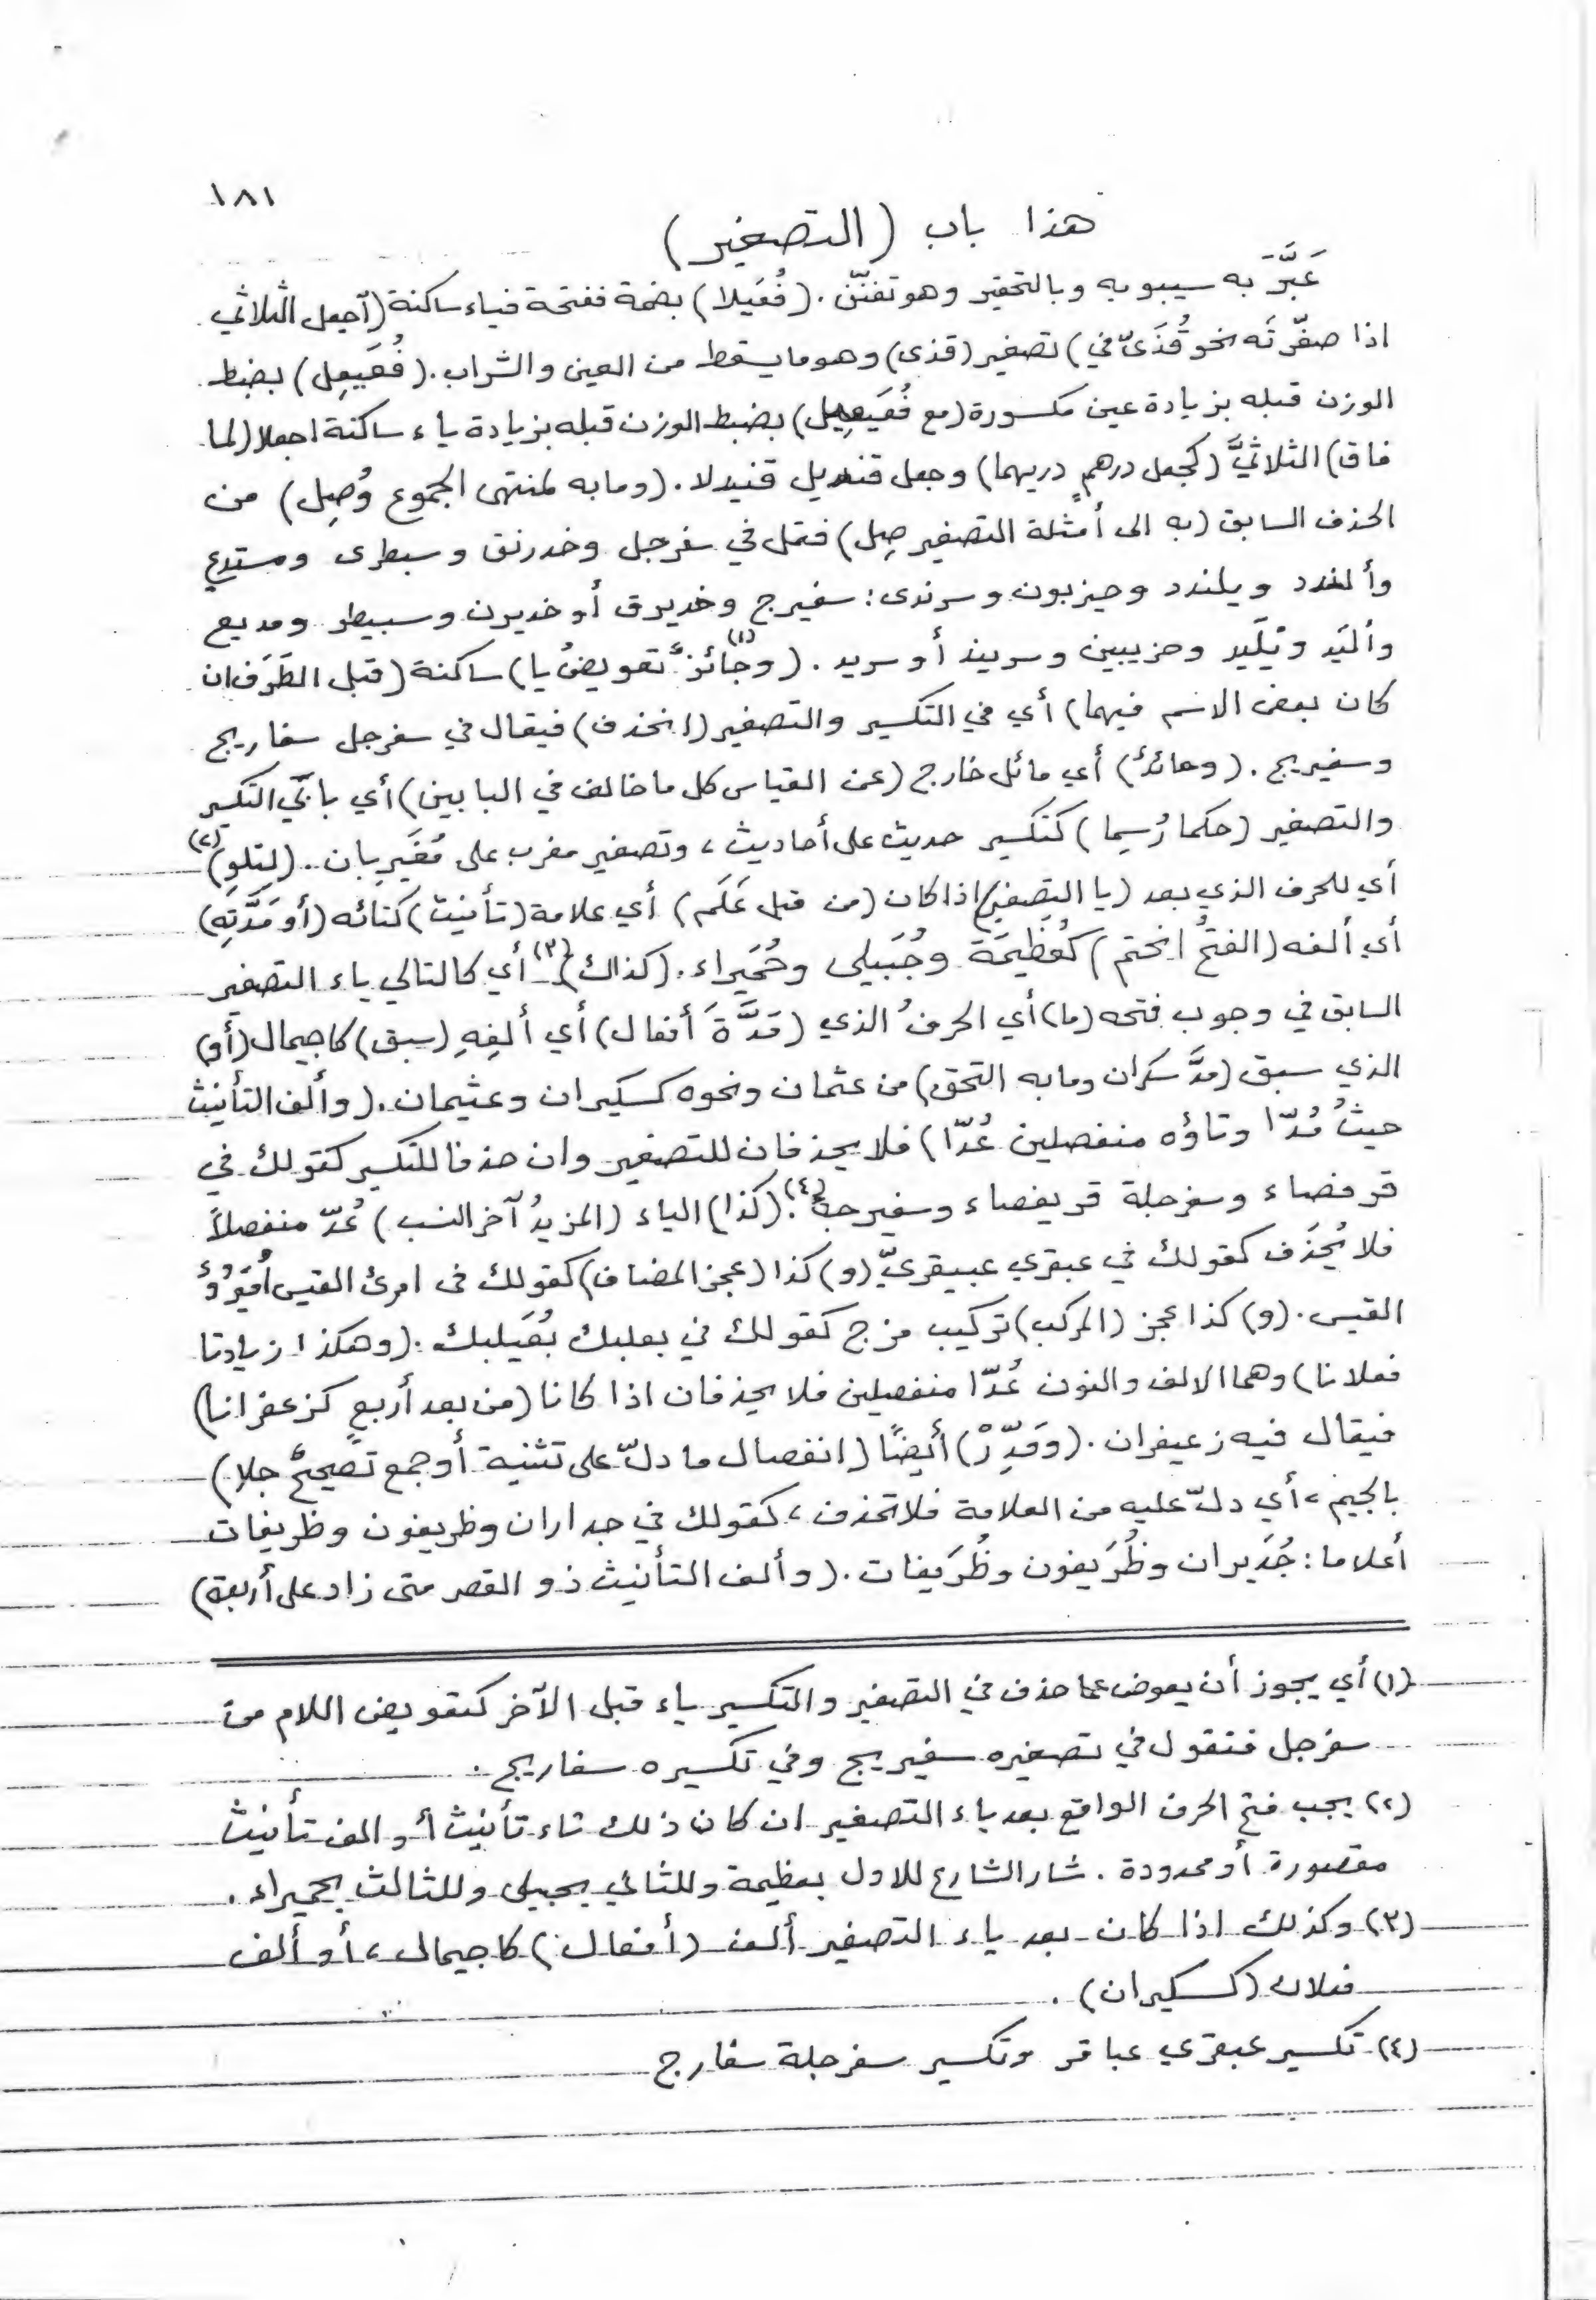 ١٨١
هذا باب (التصغير)
عَبَّرَ به سيبويه وبالتحقير وهو تفنّن. (فُعَيلا) بضمة ففتحة فياء ساكنة (اجعل الثلاثي
اذا صغّرتَه نحو قُذَىّ في) تصغير (قذى) وهو ما يسقط من العين والشراب. (فُعَيعِل) بضبط
الوزن قبله بزيادة عين مكسورة (مع فُعَيعِيل) بضبط الوزن قبله بزيادة ياء ساكنة اجعلا (لما
فاق) الثلاثيَّ (كجعل درهمٍ دريهما) وجعل قنديل قنيدلا. (وما به لمنتهى الجموع وُصِل) من
الحذف السابق (به الى أمثلة التصغير صِل) فقل في سفرجل وخدرنق وسبطرى ومستدع
وألندد ويلندد وحيزبون وسرندى: سفيرج وخديرق أو خديرن وسبيطر ومديع
وأليّد ويليّد وحزيبين وسريند أو سريد. (وجائزٌ(١) تعويضُ يا) ساكنة (قبل الطَرَف ان
كان بعض الاسم فيهما) أي في التكسير والتصغير (انحذف) فيقال في سفرجل سفاريج
وسفيريج. (وحائدٌ) أي مائل خارج (عن القياس كل ما خالف في البابين) أي بابَي التكسير
والتصغير (حكما رُسِما) كتكسير حديث على أحاديث، وتصغير مغرب على مُغَيرِبان. (لِتلوِ)(٢)
أي للحرف الذي بعد (يا التصغير) اذا كان (من قبل عَلَم) أي علامة (تأنيث) كتائه (أو مَدَّتِهِ)
أي ألفه (الفتحُ انحتم) كعُظَيمَة وجُبَيلى وحُمَيراء. (كذاك)(٣) أي كالتالي ياء التصغير
السابق في وجوب فتحه (ما) أي الحرفُ الذي (مَدَّةَ أفعال) أي ألِفِهِ (سبق) كاجيمال (أو)
الذي سبق (مدَّ سكران وما به التحق) من عثمان ونحوه كسكيران وعثيمان. (وألف التأنيث
حيثُ مُدّا وتاؤه منفصلين عُدّا) فلا يحذفان للتصغير وان حذفا للتكسير كقولك في
قرفصاء وسفرجلة قريفصاء وسفيرجة(٤). (كذا) الياء (المزيدُ آخر النسب) عُدّ منفصلاً
فلا يُحذَف كقولك في عبقري عبيقريّ (و) كذا (عجز المضاف) كقولك فى امرئ القيس أُمَيْرُؤُ
القيس. (و) كذا عجز (المركب) تركيب مزج كقولك في بعلبك بُعَيلبك. (وهكذا زيادتا
فعلانا) وهما الالف والنون عُدّا منفصلين فلا يحذفان اذا كانا (من بعد أربعٍ كزعفرانا)
فيقال فيه زعيفران. (وَقَدِّرْ) أيضًا (انفصال ما دلّ على تثنية أو جمع تصحيحٍ جلا)
بالجيم، أي دلّ عليه من العلامة فلا تحذف، كقولك في جداران وظريفون وظريفات
أعلاما: جُدَيران وظُرَيفون وظُرَيفات. (وألف التأنيث ذو القصر متى زاد على أربعة)
(١) أي يجوز أن يعوض عما حذف في التصغير والتكسير ياء قبل الآخر كتعويض اللام من
سفرجل فتقول في تصغيره سفيريج وفي تكسيره سفاريج.
(٢) يجب فتح الحرف الواقع بعد ياء التصغير ان كان ذلك تاء تأنيث أو الف تأنيث
مقصورة أو ممدودة. شار الشارع للاول بعظيمة وللثاني بجبيلى وللثالث بحميراء.
(٣) وكذلك اذا كان بعد ياء التصغير ألف (أفعال) كاجيمال، أو ألف
فعلان (كسكيران).
(٤) تكسير عبقري عباقر وتكسير سفرجلة سفارج